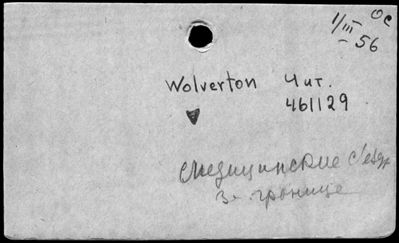 1/III - 56
Wolverton Чит.
461129
медицинские
границе